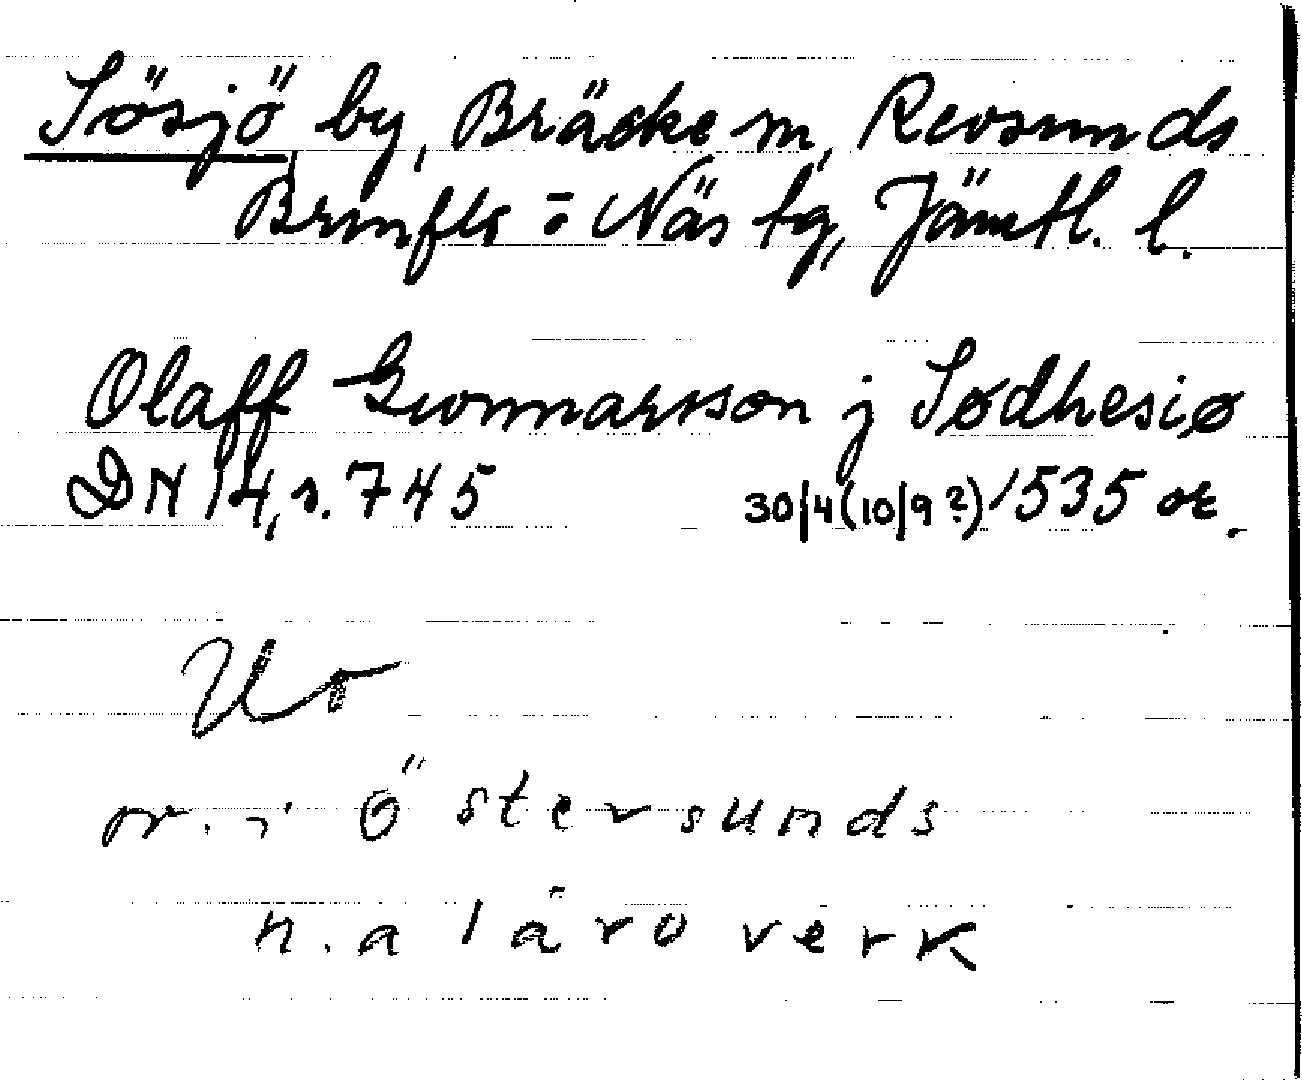 Sösjö by, Bräcke sn, Revsunds
Brunflo o Näs tg, Jämtl. l.
Olaff Gunnarsson j Sødhesiø
DN 14, s. 745 30/4 (10/9?) 1535 or.
or. i Östersunds
h. a läroverk